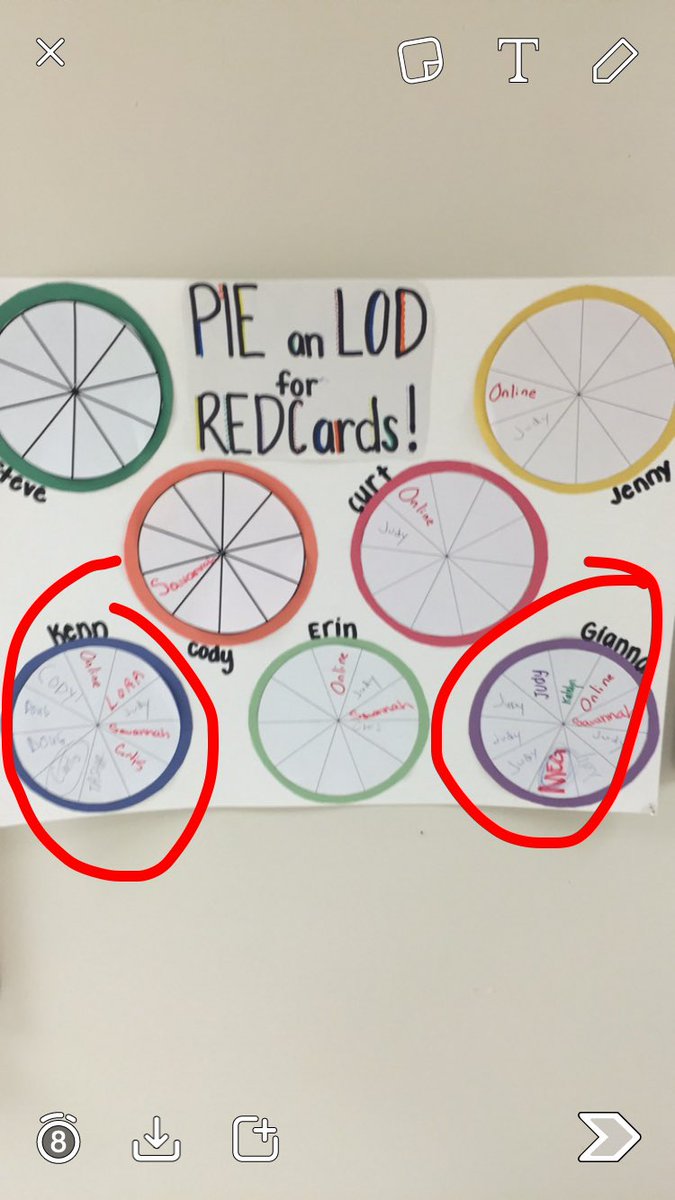 T
PIE an LOD
for
REDCards!
Steve
Online
Judy
Jenny
Curt
Online
Judy
Savannah
Cody
Kenn
Online
LORA
CODY!
Judy
Savannah
DOUG
Erin
Online
Judy
Savannah
Gianna
Judy
Katelyn
Online
Judy
Savannah
Judy
Judy
Judy
MEG
8